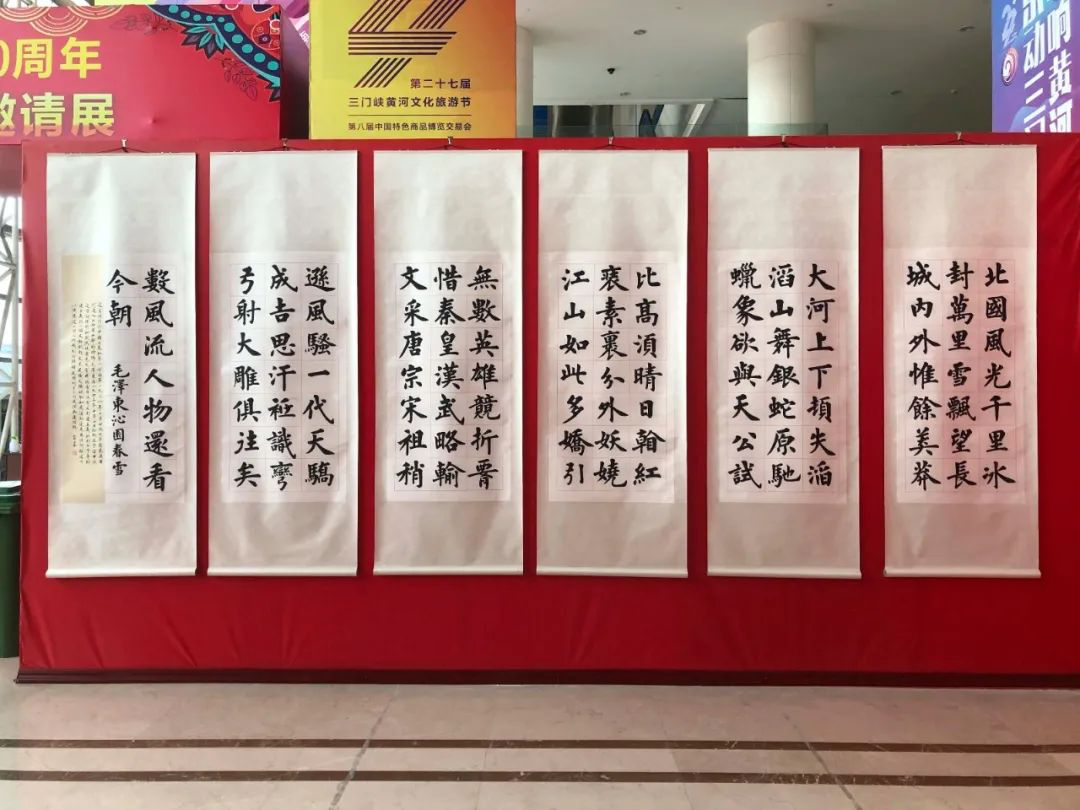 0周年
邀请展
第二十七届
三门峡黄河文化旅游节
第八届中国特色商品博览交易会
响黄河
动三门
北國風光千里冰
封萬里雪飄望長
城內外惟餘莽莽
大河上下頓失滔
滔山舞銀蛇原馳
蠟象欲與天公試
比高須晴日看紅
裝素裹分外妖嬈
江山如此多嬌引
無數英雄競折腰
惜秦皇漢武略輸
文采唐宗宋祖稍
遜風騷一代天驕
成吉思汗衹識彎
弓射大雕俱往矣
數風流人物還看
今朝
毛澤東沁園春雪